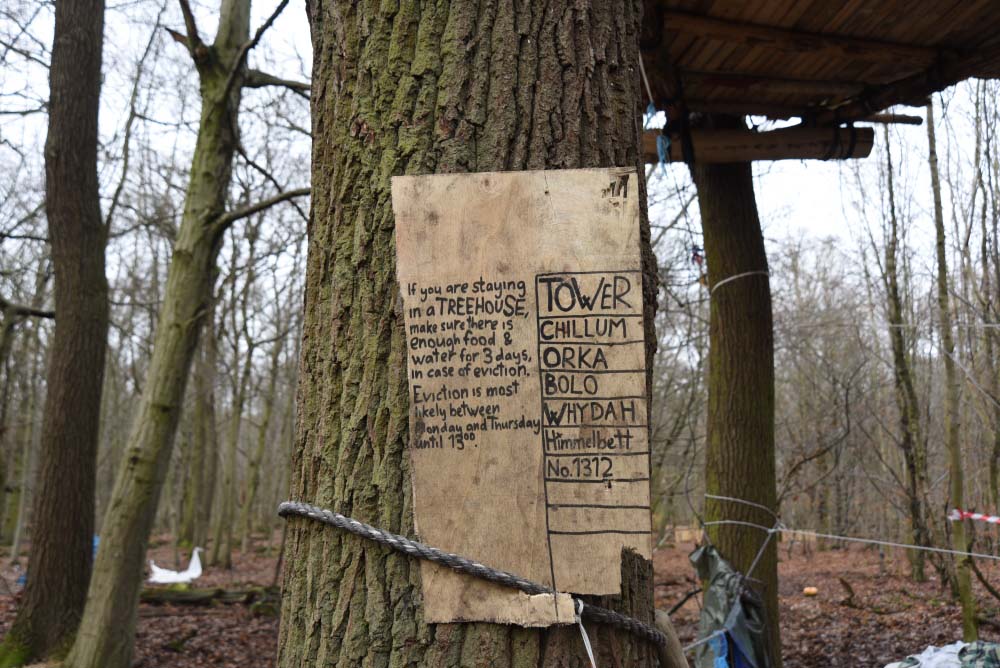 If you are staying
in a TREEHOUSE,
make sure there is
enough food &
water for 3 days,
in case of eviction.
Eviction is most
likely between
Monday and Thursday
until 13⁰⁰.
TOWER
CHILLUM
ORKA
BOLO
WHYDAH
Himmelbett
No.1312